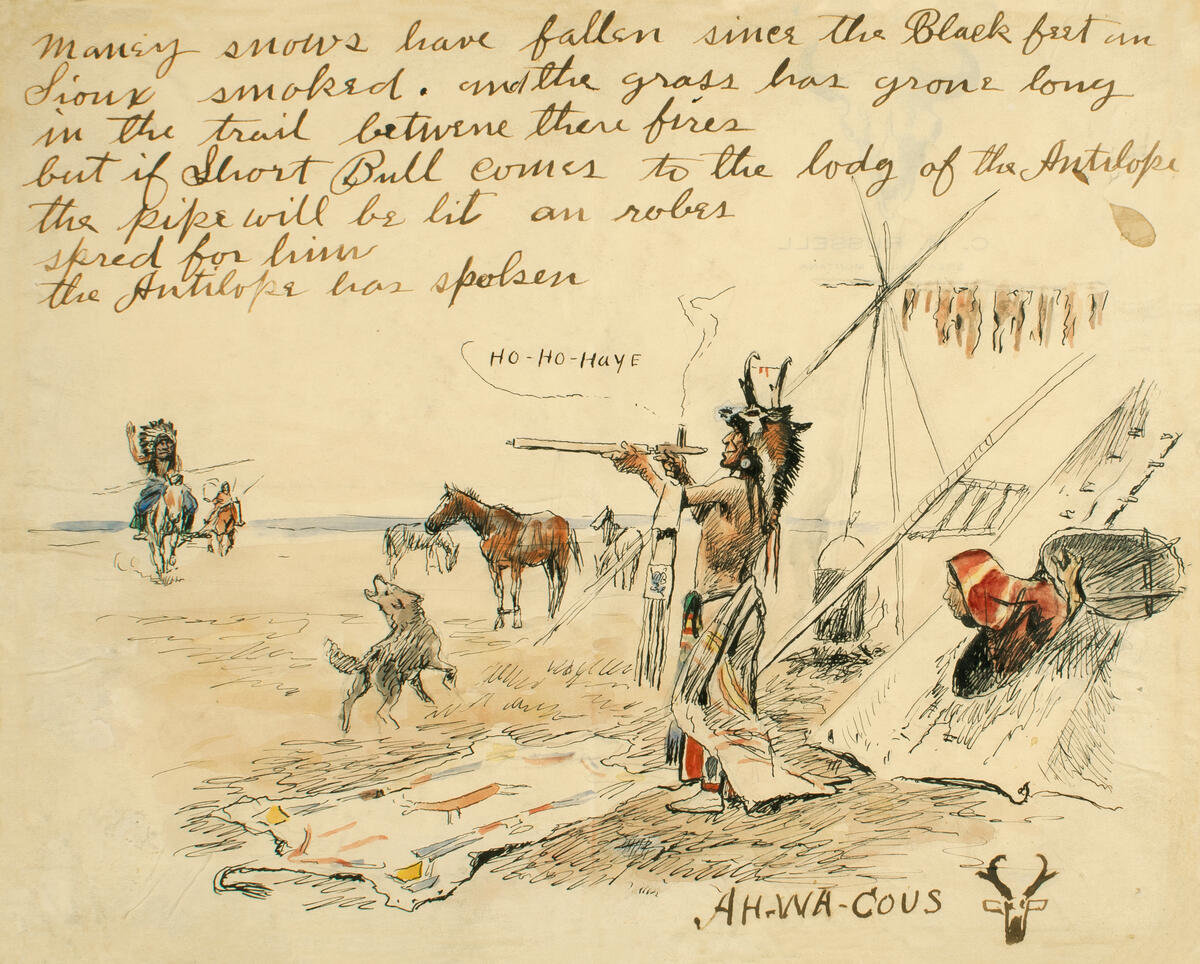 maney snows have fallen since the Black feet an
Sioux smoked. and the grass has grone long
in the trail betwene there fires
but if Short Bull comes to the lodg of the Antilope
the pipe will be lit an robes
spred for him
the Antilope has spoken
HO-HO-HAYE
AH-WA-COUS